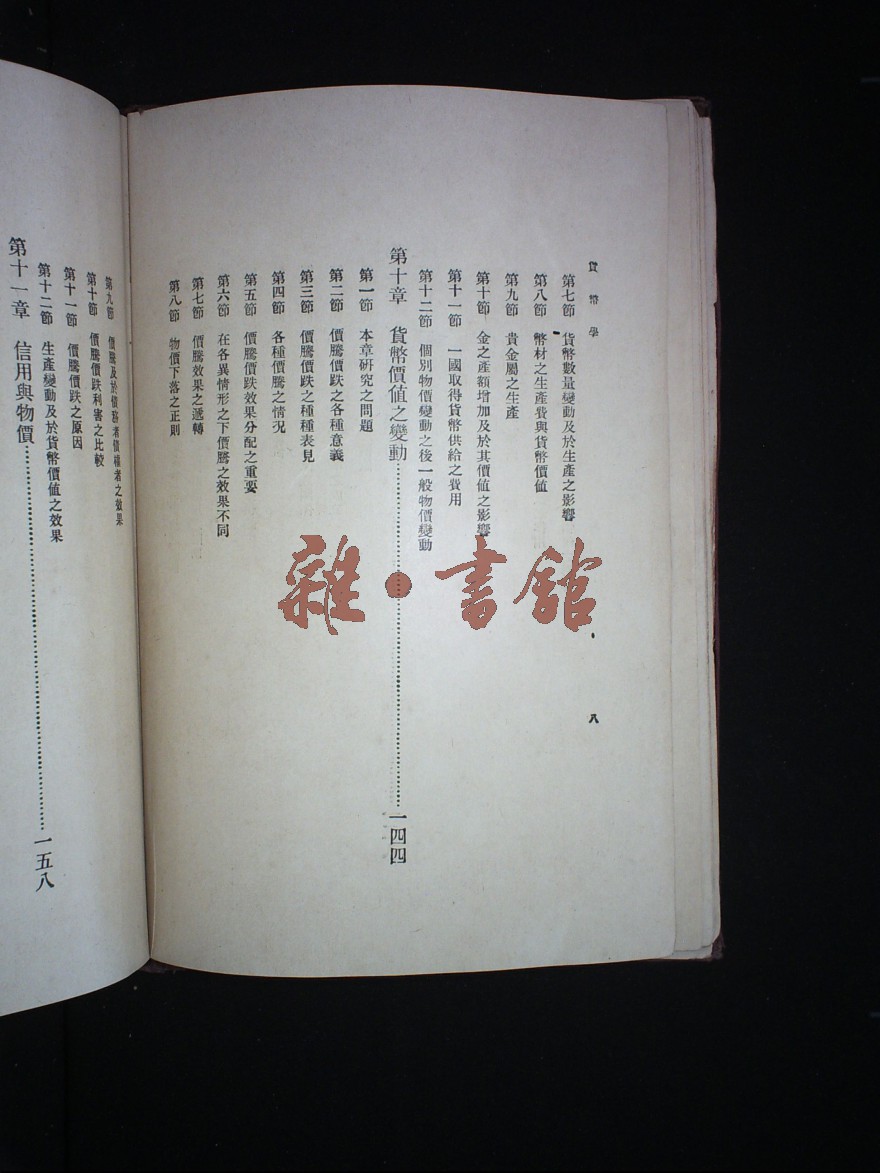 貨幣學
八
第七節 貨幣數量變動及於生產之影響
第八節 幣材之生產費與貨幣價值
第九節 貴金屬之生產
第十節 金之產額增加及於其價值之影響
第十一節 一國取得貨幣供給之費用
第十二節 個別物價變動之後一般物價變動
第十章 貨幣價值之變動 一四四
第一節 本章研究之問題
第二節 價騰價跌之各種意義
第三節 價騰價跌之種種表見
第四節 各種價騰之情況
第五節 價騰價跌效果分配之重要
第六節 在各異情形之下價騰之效果不同
第七節 價騰效果之遞轉
第八節 物價下落之正則
第九節 價騰及於債務者債權者之效果
第十節 價騰價跌利害之比較
第十一節 價騰價跌之原因
第十二節 生產變動及於貨幣價值之效果
第十一章 信用與物價 一五八
雜·書館